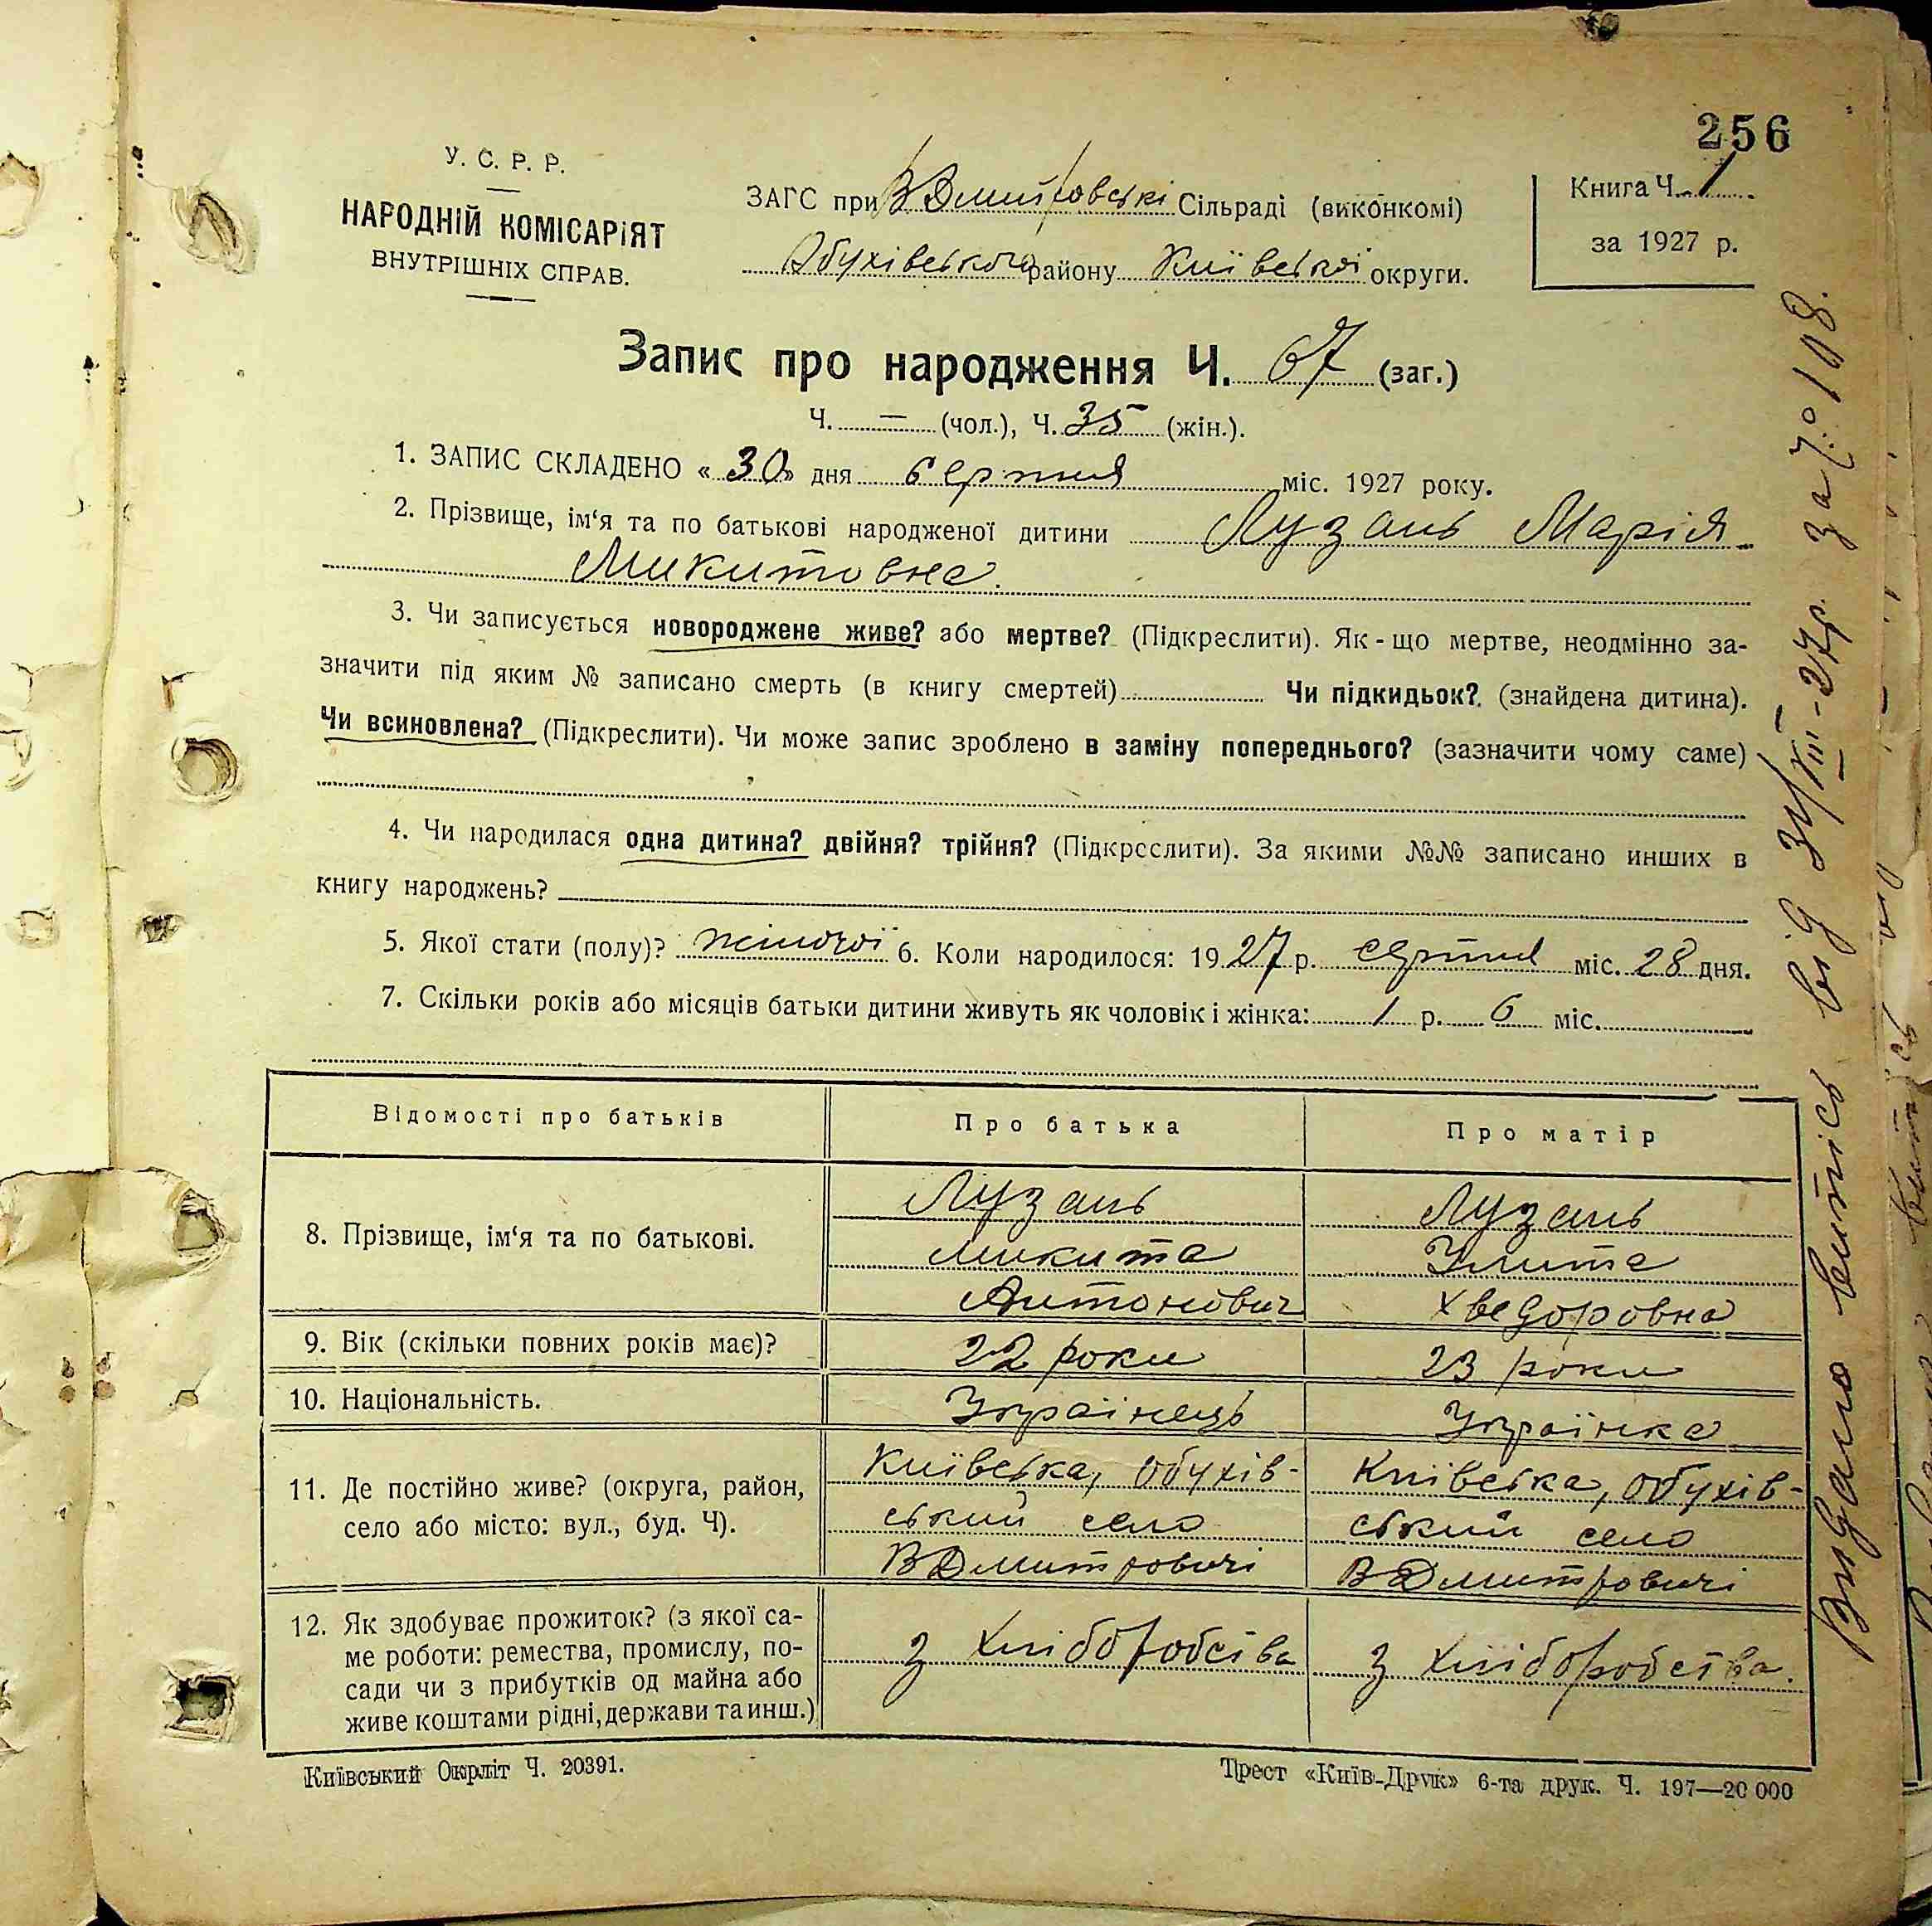 256
У. С. Р. Р.
НАРОДНІЙ КОМІСАРІЯТ
ВНУТРІШНІХ СПРАВ.
ЗАГС при ВДмитровські Сільраді (виконкомі)
Обухівського району Київської округи.
Книга Ч. 1
за 1927 р.
Запис про народження Ч. 67 (заг.)
Ч. — (чол.), Ч. 35 (жін.).
1. ЗАПИС СКЛАДЕНО « 30 » дня серпня міс. 1927 року.
2. Прізвище, ім‘я та по батькові народженої дитини Лузань Марія
Микитовна.
3. Чи записується новороджене живе? або мертве? (Підкреслити). Як-що мертве, неодмінно за-
значити під яким № записано смерть (в книгу смертей) Чи підкидьок? (знайдена дитина).
Чи всиновлена? (Підкреслити). Чи може запис зроблено в заміну попереднього? (зазначити чому саме)
4. Чи народилася одна дитина? двійня? трійня? (Підкреслити). За якими №№ записано инших в
книгу народжень?
5. Якої стати (полу)? жіночої 6. Коли народилося: 1927 р. серпня міс. 28 дня.
7. Скільки років або місяців батьки дитини живуть як чоловік і жінка: 1 р. 6 міс.
Відомості про батьків Про батька Про матір
8. Прізвище, ім‘я та по батькові.
Лузань
микита
Антонович
Лузань
Улита
Хведоровна
9. Вік (скільки повних років має)? 22 роки 23 роки
10. Національність. Українець Українка
11. Де постійно живе? (округа, район,
село або місто: вул., буд. Ч).
Київська, Обухів-
ський село
ВДмитровичі
Київська, Обухів-
ський село
ВДмитровичі
12. Як здобуває прожиток? (з якої са-
ме роботи: ремества, промислу, по-
сади чи з прибутків од майна або
живе коштами рідні, держави та инш.)
з хліборобства
з хліборобства.
Київський Окрліт Ч. 20391.
Трест «Київ-Друк» 6-та друк. Ч. 197—20 000
Видано витпісь від 31/VIII-27р. за № 108.